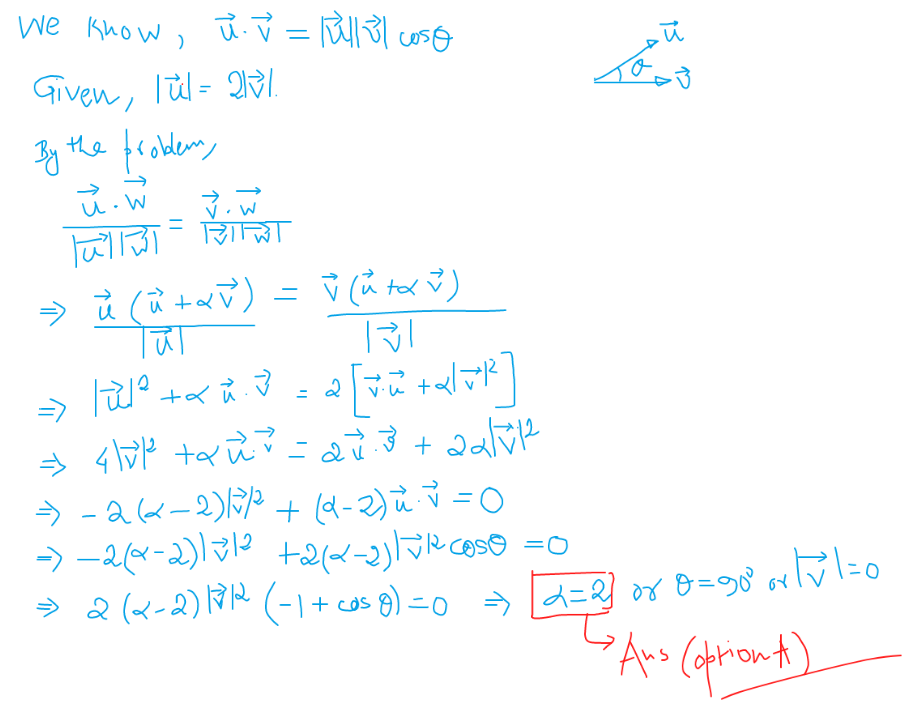 We know, u⃗.v⃗ = |u⃗||v⃗| cosθ
u⃗
θ
v⃗
Given, |u⃗| = 2|v⃗|.
By the problem,
u⃗.w⃗ / |u⃗||w⃗| = v⃗.w⃗ / |v⃗||w⃗|
⇒ u⃗ (u⃗ + αv⃗) / |u⃗| = v⃗ (u⃗ + α v⃗) / |v⃗|
⇒ |u⃗|² + α u⃗.v⃗ = 2 [v⃗.u⃗ + α|v⃗|²]
⇒ 4|v⃗|² + α u⃗.v⃗ = 2 u⃗.v⃗ + 2α|v⃗|²
⇒ -2(α-2)|v⃗|² + (α-2) u⃗.v⃗ = 0
⇒ -2(α-2)|v⃗|² + 2(α-2)|v⃗|² cosθ = 0
⇒ 2(α-2)|v⃗|² (-1 + cosθ) = 0 ⇒ α=2 or θ=90° or |v⃗|=0
Ans (option A)